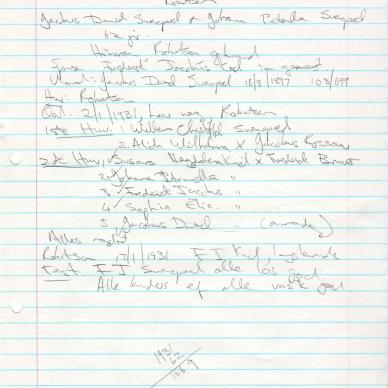 Robertson
Jacobus Daniel Swanepoel & Johanna Petronella Swanepoel
62 jr.
Huisvrou Robertson gebore
Spouse Frederik Jacobus Kriel in gemeenskap
Vader: Jacobus Daniel Swanepoel 15/3/1897 103/699
Huw: Robertson
Oorl. 2/1/1931, haar woning, Robertson
1ste Huw: 1. Willem Christoffel Swanepoel
2. Alida Wilhelmina x Jacobus Rossouw
2de Huw: 1. Susara Magdalena Kriel x Frederik
2. Johanna Petronella "
3. Frederick Jacobus "
4. Sophia Eliz. "
5. Jacobus Daniel "
Alles
Robertson 17/1/1931 F J Kriel,
Test F J alle los goed
Alle kinders erf alle vaste goed
1931
62
1869